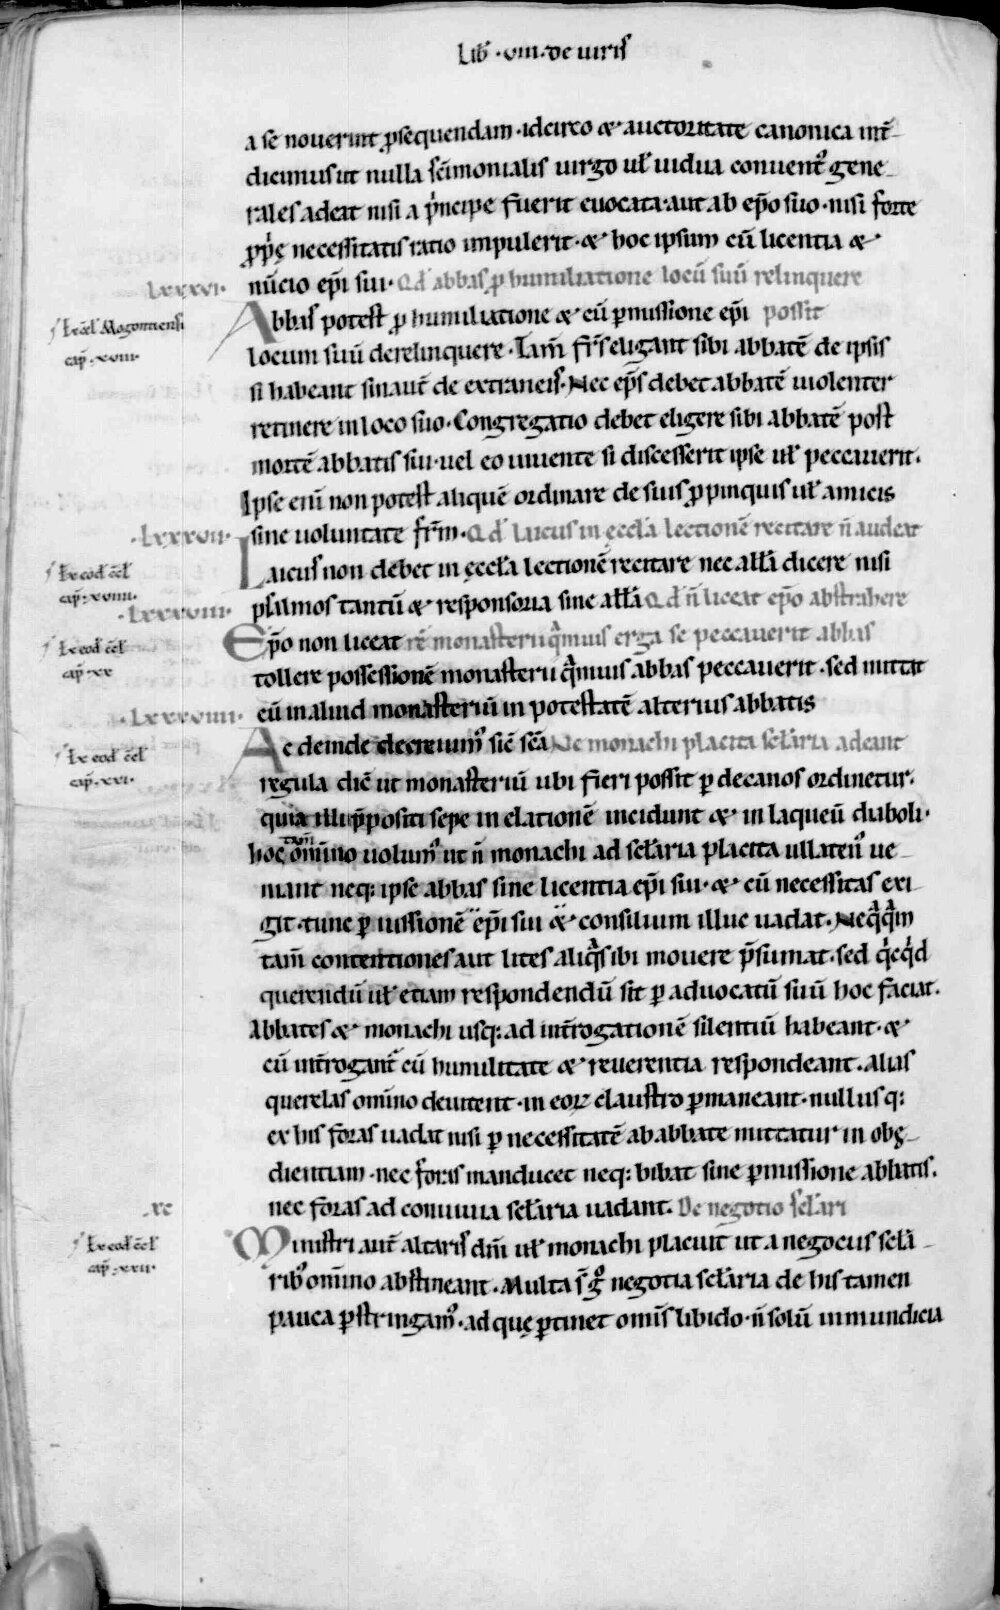 Lib̄ · viii · de viris
a se noverint p̱sequendam · idcirco & auctoritate canonica int̄
dicimus ut nulla sc̄imonialis virgo ul̄ vidua convent᷒ gene
rales adeat nisi a p̍ncipe fuerit evocata · aut ab ep̄o suo · nisi forte
necessitatis ratio impulerit · & hoc ipsum cū licentia &
· Lxxxvi · nūcio ep̄i sui · Qd̄ abbas p̱ humiliatione locū suū relinquere
Ex c̄cl̄ Mogontiensi Abbas potest p̱ humiliatione & cū p̱missione ep̄i possit
cap̄ · xviii · locum suū derelinquere · Tam̄ fr̄s eligant sibi abbatē de ipsis
si habeant sin aut̄ de extraneis · Nec ep̄s debet abbatē violenter
retinere in loco suo · Congregatio debet eligere sibi abbatē post
mortē abbatis sui · vel eo vivente si discesserit ipse ul̄ peccaverit ·
Ipse eni̅ non potest aliquē ordinare de suis p̱pinquis ul̄ amicis
· Lxxxvii · sine voluntate fr̄m · Qd̄ Laicus in ęccl̄a lectionē recitare n̄ audeat
Ex eod̄ c̄cl̄ Laicus non debet in ęccl̄a lectionē recitare nec all̄a dicere nisi
cap̄ · xviiii ·
· Lxxxviii · psalmos tantū & responsoria sine all̄a Qd̄ n̄ liceat ep̄o abstrahere
Ex eod̄ c̄cl̄ Ep̄o non liceat rē monasterii qͣmvis erga se peccaverit abbas
cap̄ · xx tollere possessionē monasterii qͣmvis abbas peccaverit · sed mittat
· Lxxxviiii · eū in aliud monasteriū in potestatē alterius abbatis
Ex eod̄ c̄cl̄ Ac deinde decrevim᷒ sic̄ sc̄a Ne monachi placita scl̄aria adeant
cap̄ · xxi · regula dic̄ ut monasteriū ubi fieri possit p̱ decanos ordinetur ·
quia illi p̄positi sepe in elationē incidunt & in laqueū diaboli ·
tam̄
hoc om̄ino volum᷒ ut n̄ monachi ad scl̄aria placita ullaten᷒ ve
niant neq: ipse abbas sine licentia ep̄i sui · & cū necessitas exi
git · tunc p̱ iussionē ep̄i sui & consilium illuc vadat · Neqͣqͣm
tam̄ contentiones aut lites aliqͣs ibi movere p̄sumat · sed qͥcqͥd
querendū ul̄ etiam respondendū sit p̱ advocatū suū hoc faciat ·
Abbates & monachi usq: ad int̄rogationē silentiū habeant · &
cū int̄rogant᷒ cū humilitate & reverentia respondeant · Alias
querelas om̄ino devitent · in eoꝝ claustro p̱maneant · nullus q:
ex his foras vadat nisi p̱ necessitatē ab abbate mittatur in obę
dientiam · nec foris manducet neq: bibat sine p̱missione abbatis ·
· xc nec foras ad convivia scl̄aria vadant · De negotio scl̄ari
Ex eod̄ c̄cl̄ Ministri aut̄ altaris dn̄i ul̄ monachi placuit ut a negociis scl̄a
cap̄ · xxii · rib᷒ om̄ino abstineant · Multa s̄ gͦ negotia scl̄aria de his tamen
pauca p̱stringam᷒ · ad quę p̱tinet omīs libido · n̄ solū inmundicia